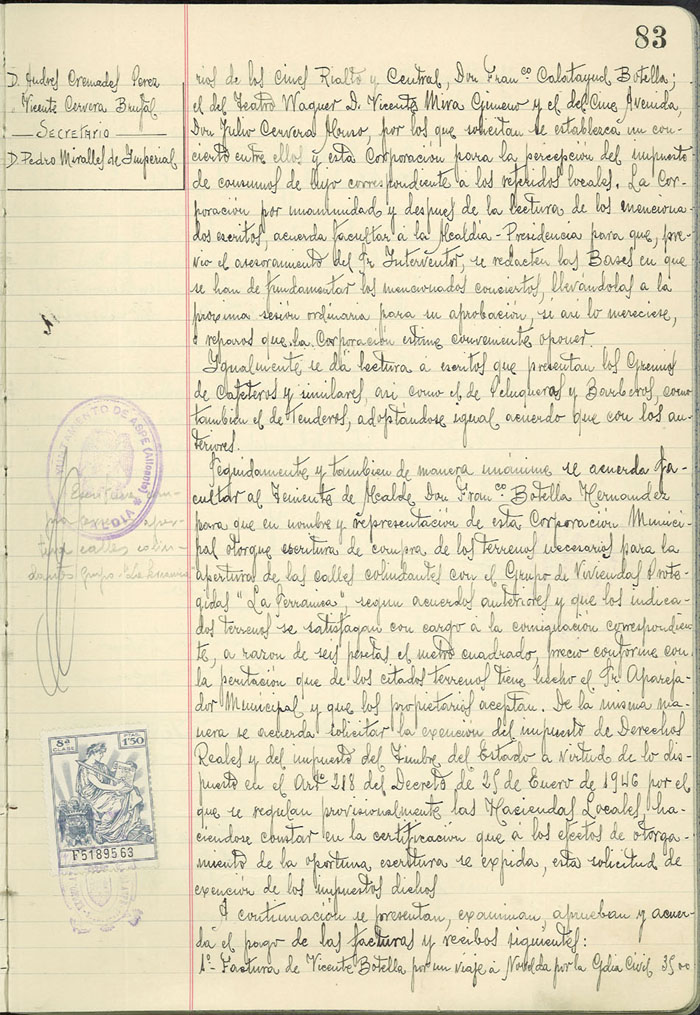 83
D. Andres Cremades Perez
" Vicente Cervera Brufal
SECRETARIO
D. Pedro Miralles de Imperial
rios de los cines Rialto y Central, Don Franco Calatayud Botella;
el del Teatro Wagner D. Vicente Mira Gimeno y el del Cine Avenida,
Don Julio Cervera Alonso, por los que solicitan se establezca un con-
cierto entre ellos y esta Corporación para la percepción del impuesto
de consumos de lujo correspondiente a los referidos locales. La Cor-
poración por unanimidad y despues de la lectura de los menciona-
dos escritos, acuerda facultar a la Alcaldía-Presidencia para que, pre-
vio el asesoramiento del Sr. Interventor, se redacten las Bases en que
se han de fundamentar los mencionados conciertos, llevándolas a la
proxima sesión ordinaria para su aprobación, si asi lo mereciese,
o reparos que la Corporación estime conveniente oponer.
Igualmente se dá lectura a escritos que presentan los Gremios
de Cafeteros y similares, asi como el de Peluqueros y Barberos, como
tambien el de Tenderos, adoptándose igual acuerdo que con los an-
teriores.
Seguidamente y tambien de manera unánime se acuerda fa-
cultar al Teniente de Alcalde Don Franco Botella Hernandez
para que en nombre y representación de esta Corporación Munici-
pal otorgue escritura de compra de los terrenos necesarios para la
apertura de las calles colindantes con el Grupo de Viviendas Prote-
gidas "La Serranica", segun acuerdos anteriores y que los indica-
dos terrenos se satisfagan con cargo á la consignación correspondien-
te, a razon de seis pesetas el metro cuadrado, precio conforme con
la peritación que de los citados terrenos tiene hecho el Sr. Apareja-
dor Municipal y que los propietarios aceptan. De la misma ma-
nera se acuerda solicitar la exención del impuesto de Derechos
Reales y del impuesto del Timbre del Estado a virtud de lo dis-
puesto en el Artº 218 del Decreto de 25 de Enero de 1946 por el
que se regulan provisionalmente las Haciendas Locales, ha-
ciendose constar en la certificación que a los efectos de otorga-
miento de la oportuna escritura se expida, esta solicitud de
exención de los impuestos dichos
A continuación se presentan, examinan, aprueban y acuer-
da el pago de las facturas y recibos siguientes:
1º- Factura de Vicente Botella por un viaje á Novelda por la Gdia Civil 35'00
AYUNTAMIENTO DE ASPE (Alicante)
ALCALDIA
Escritura com-
pra
calles colin-
dantes Grupo "La Serranica"
8ª CLASE
PTAS. 1'50
F5189563